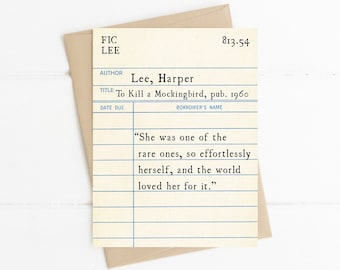 FIC 813.54
LEE
AUTHOR Lee, Harper
TITLE To Kill a Mockingbird, pub. 1960
DATE DUE BORROWER'S NAME
“She was one of the
rare ones, so effortlessly
herself, and the world
loved her for it.”